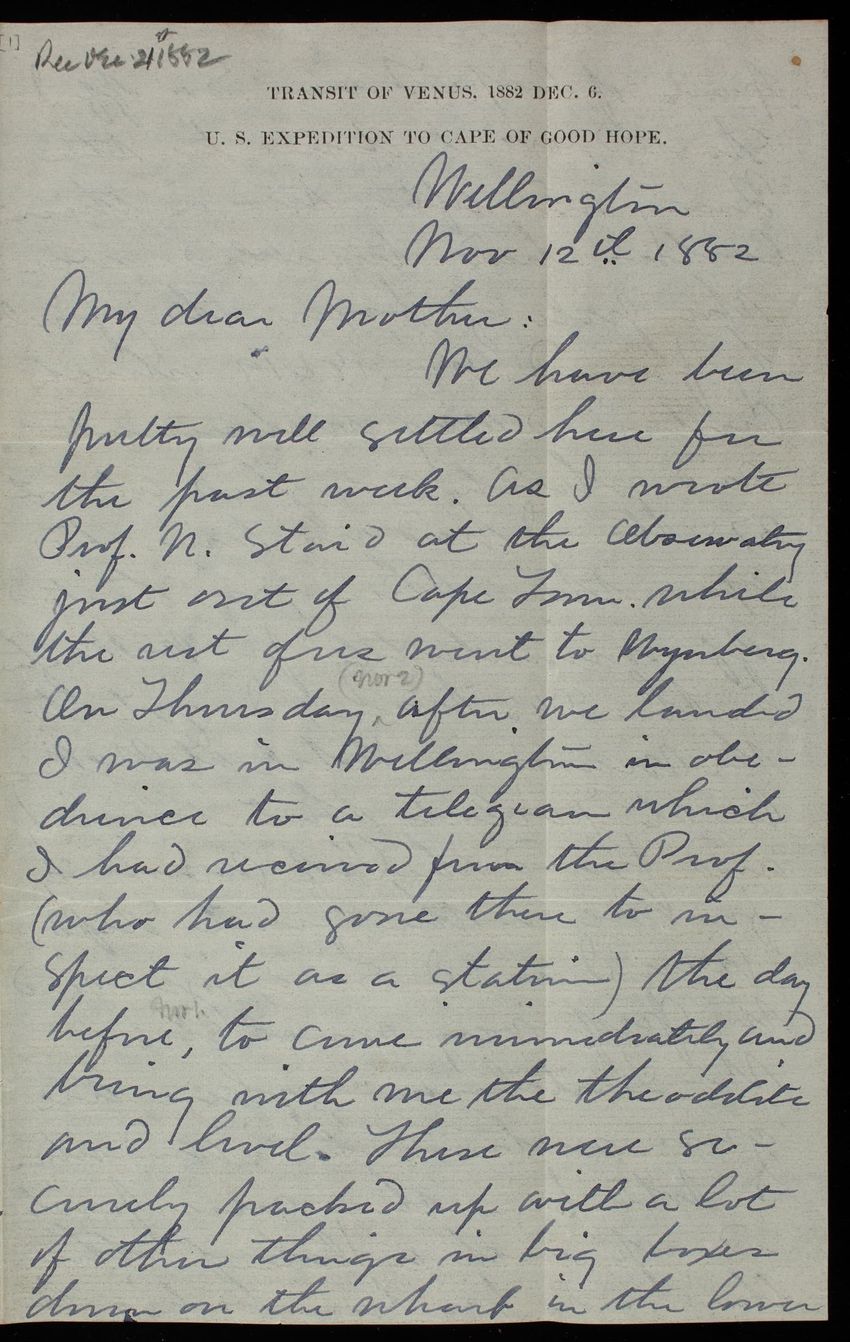 [1]
Rec Dec 21st 1882
TRANSIT OF VENUS, 1882 DEC. 6.
U. S. EXPEDITION TO CAPE OF GOOD HOPE.
Wellington
Nov 12th 1882
My dear Mother:
We have been
pretty well settled here for
the past week. As I wrote
Prof. N. staid at the Observatory
just out of Cape Town. while
the rest of us went to Wynberg.
(Nov 2)
On Thursday, after we landed
I was in Wellington in obe-
dience to a telegram which
I had received from the Prof.
(who had gone there to in-
spect it as a station) the day
Nov 1.
before, to come immediately and
bring with me the theodolite
and level. These were se-
curely packed up with a lot
of other things in big boxes
down on the wharf in the lower